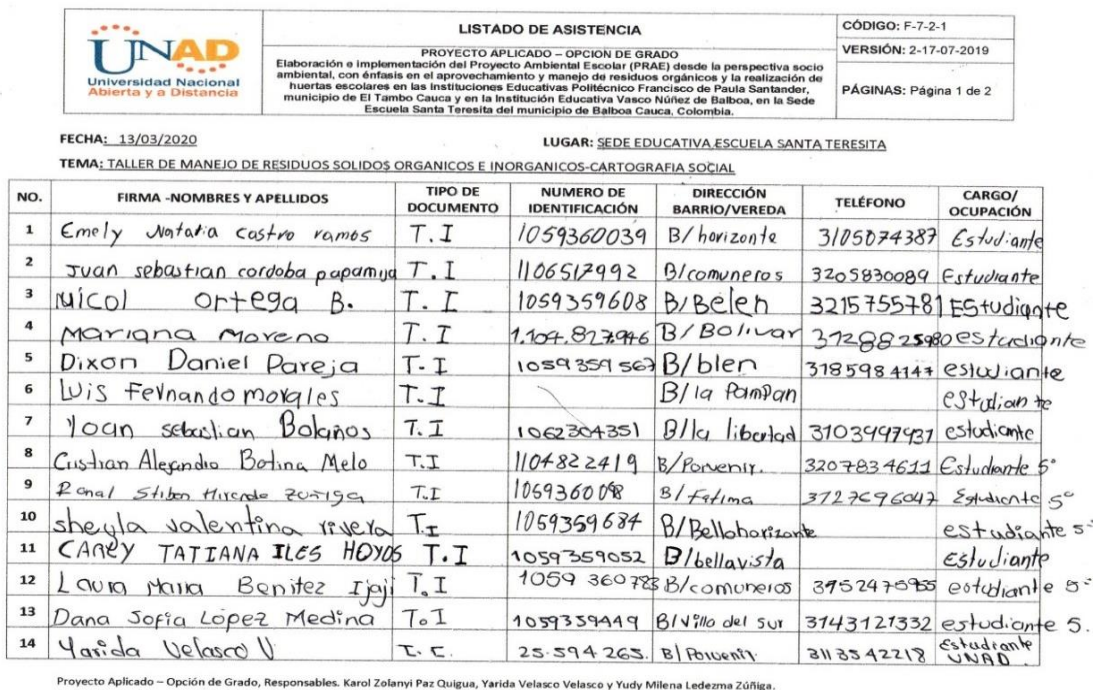 UNAD
Universidad Nacional
Abierta y a Distancia
LISTADO DE ASISTENCIA
PROYECTO APLICADO – OPCION DE GRADO
Elaboración e implementación del Proyecto Ambiental Escolar (PRAE) desde la perspectiva socio
ambiental, con énfasis en el aprovechamiento y manejo de residuos orgánicos y la realización de
huertas escolares en las Instituciones Educativas Politécnico Francisco de Paula Santander,
municipio de El Tambo Cauca y en la Institución Educativa Vasco Núñez de Balboa, en la Sede
Escuela Santa Teresita del municipio de Balboa Cauca, Colombia.
CÓDIGO: F-7-2-1
VERSIÓN: 2-17-07-2019
PÁGINAS: Página 1 de 2
FECHA: 13/03/2020 LUGAR: SEDE EDUCATIVA ESCUELA SANTA TERESITA
TEMA: TALLER DE MANEJO DE RESIDUOS SOLIDOS ORGANICOS E INORGANICOS-CARTOGRAFIA SOCIAL
NO. FIRMA -NOMBRES Y APELLIDOS TIPO DE DOCUMENTO NUMERO DE IDENTIFICACIÓN DIRECCIÓN BARRIO/VEREDA TELÉFONO CARGO/ OCUPACIÓN
1 Emely Natalia Castro ramos T.I 1059360039 B/horizonte 3105074387 Estudiante
2 Juan sebastian cordoba papamija T.I 1106517992 B/comuneros 3205830089 Estudiante
3 Nicol ortega B. T.I 1059359608 B/Belen 3215755781 Estudiante
4 Mariana Moreno T.I 1.104.827.946 B/Bolivar estudiante
5 Dixon Daniel Pareja T-I 1059359567 B/blen 3185984147 estudiante
6 Luis Fernando morales T.I B/la Pampan estudiante
7 Yoan sebastian Bolaños T.I 1062304351 B/la libertad 3103997931 estudiante
8 Cristian Alejandro Botina Melo T.I 1104822419 B/Porvenir. 3207834611 Estudiante 5°
9 Ronal Stiben T.I B/Fatima 3127696047 Estudiante 5°
10 sheyla valentina rivera T.I 1059359684 B/Bellohorizonte estudiante 5°
11 CAREY TATIANA ILES HOYOS T.I 1059359052 B/bellavista Estudiante
12 Laura Maria Benitez Ijaji T.I 1059 360783 B/comuneros estudiante 5°
13 Dana Sofia López Medina T.I 1059359449 B/Villa del sur 3143121332 estudiante 5.
14 Yarida Velasco V. 25.594.265. B/Porvenir. 3113542218 Estudiante UNAD
Proyecto Aplicado – Opción de Grado, Responsables. Karol Zolanyi Paz Quigua, Yarida Velasco Velasco y Yudy Milena Ledezma Zúñiga.